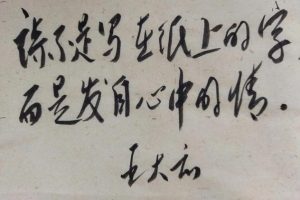 不是写在纸上的字
而是发自心中的情。
王大